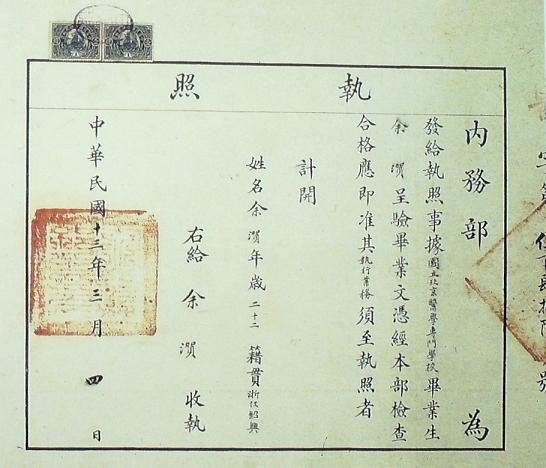 執照
內務部 為
發給執照事據國立北京醫學專門學校畢業生
余㵑呈驗畢業文憑經本部檢查
合格應即准其執行業務須至執照者
計開
姓名余㵑年歲二十二籍貫浙江紹興
右給余㵑收執
中華民國十三年三月四日